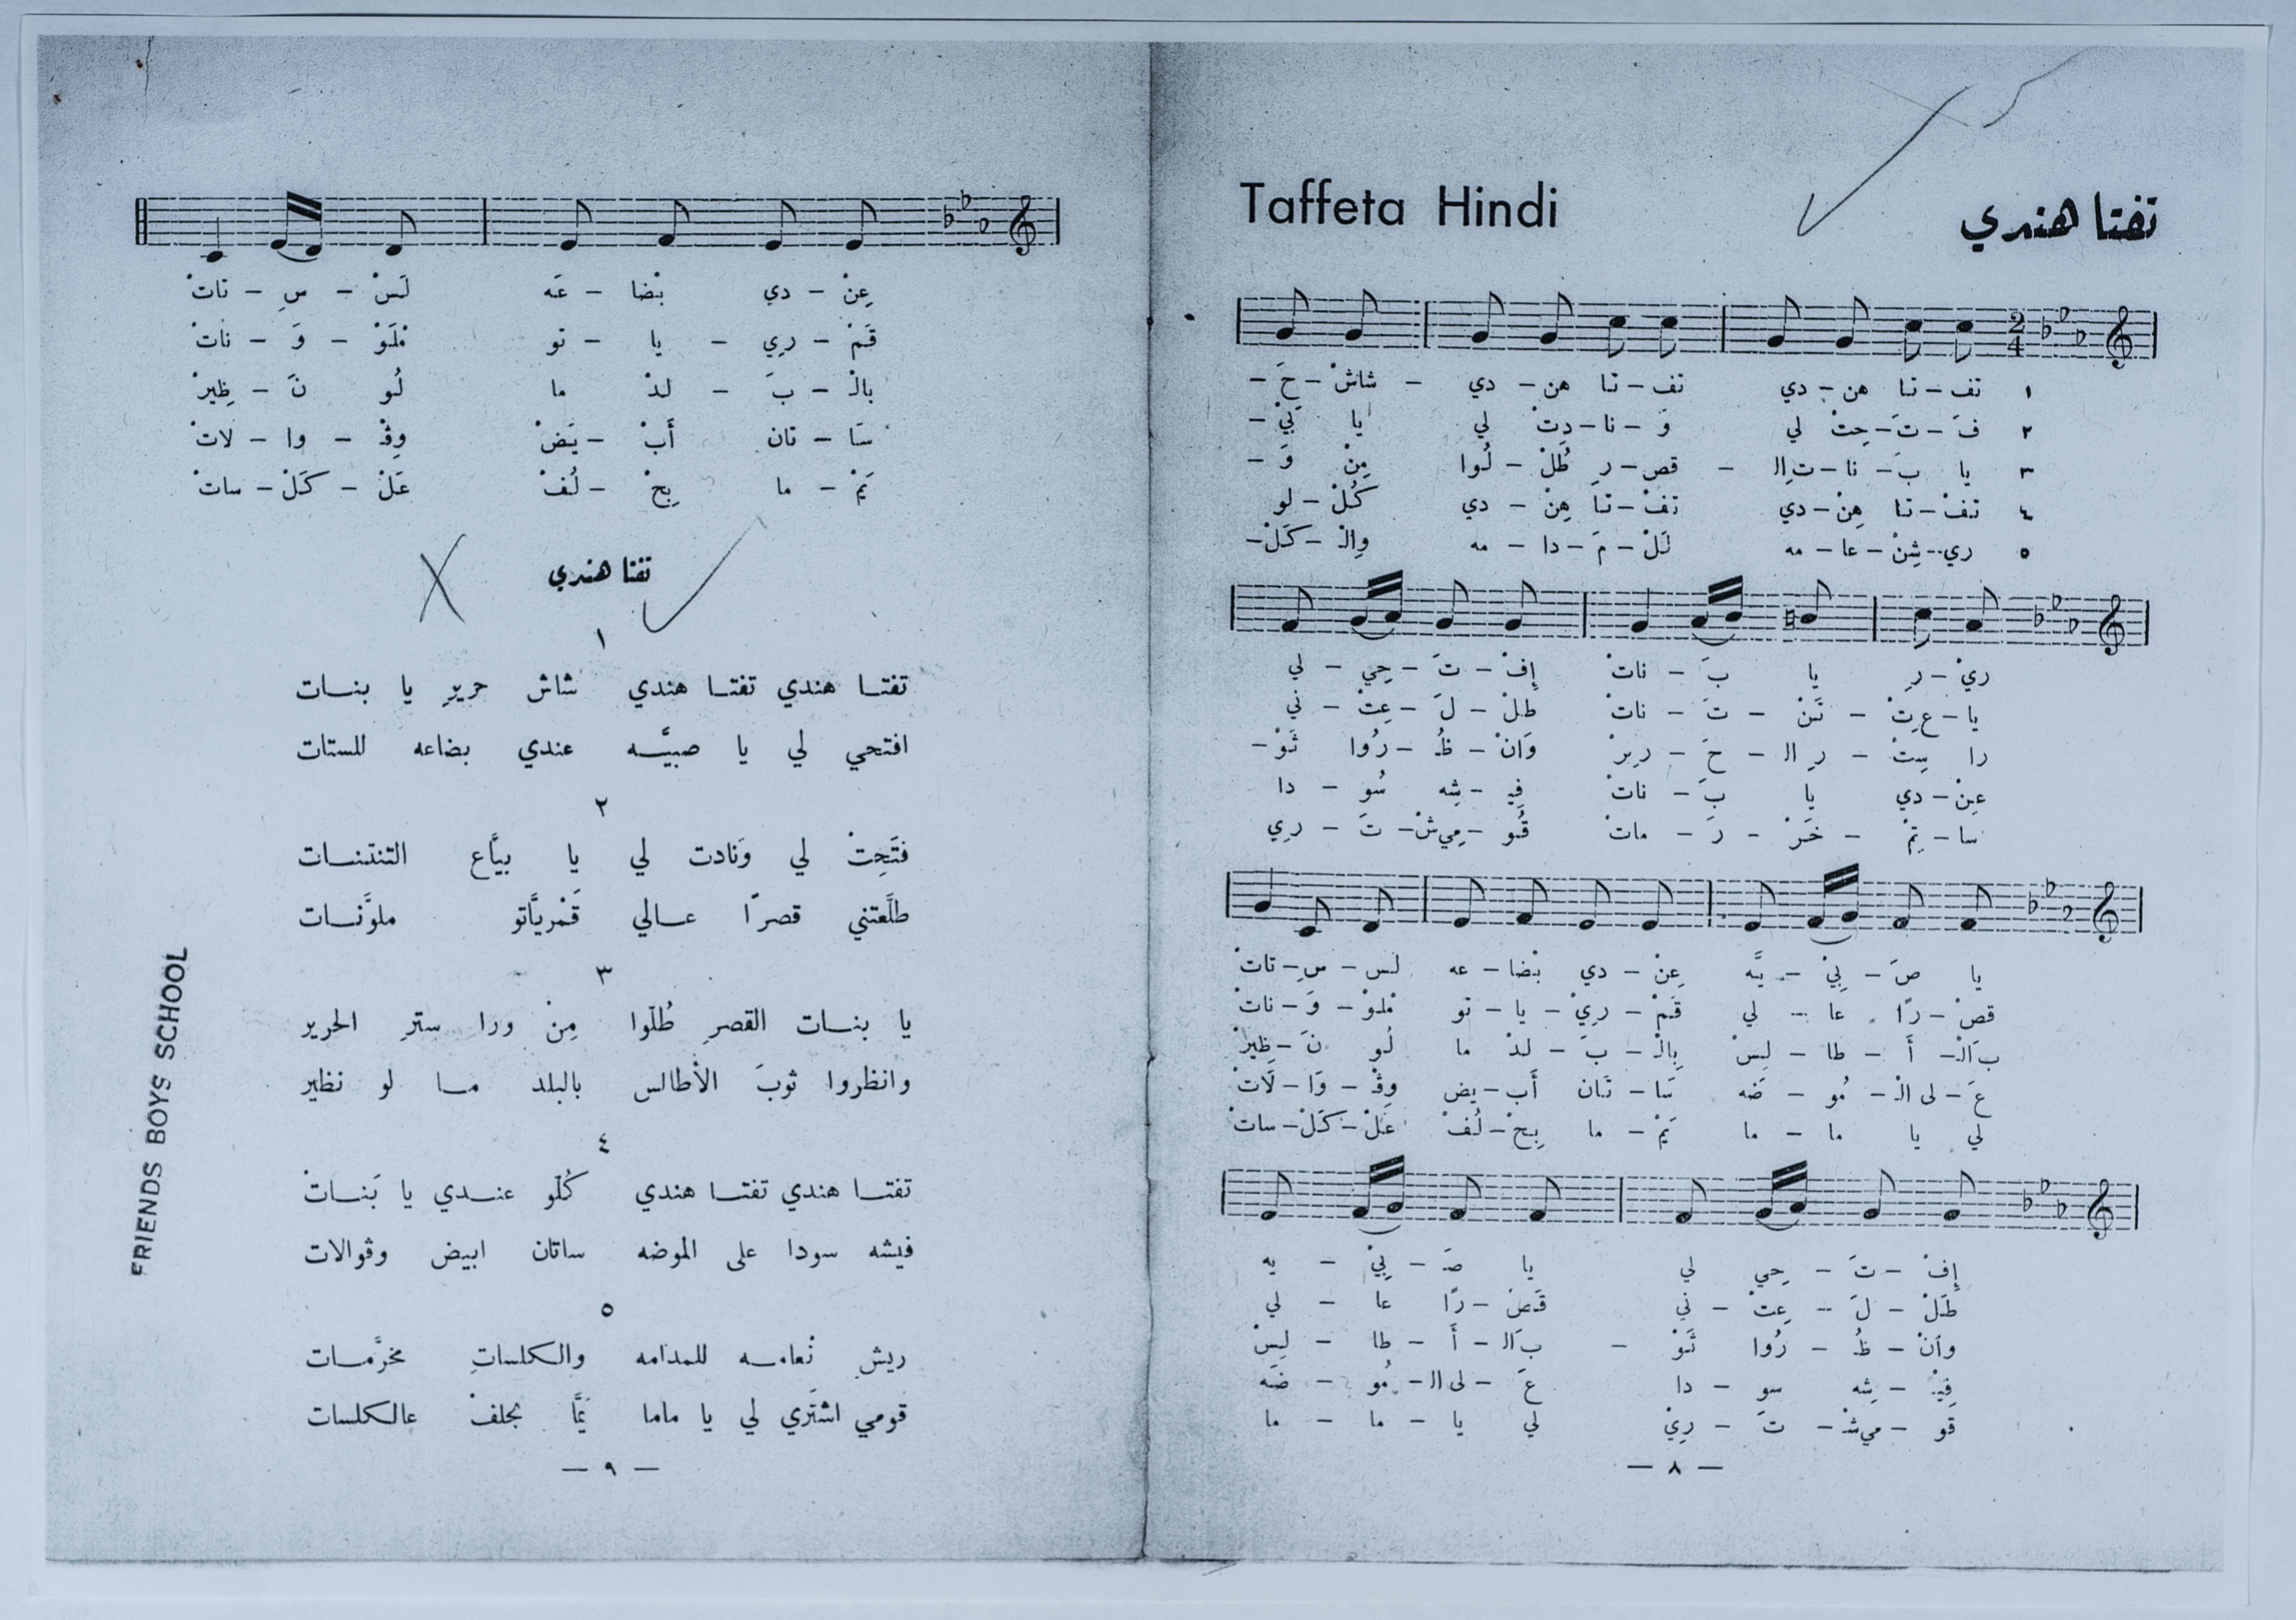 Taffeta Hindi
تفتا هندي
2
4
١ تف – تا هن – دي تف – تا هن – دي – شاشْ – حَ –
٢ فَ – تَ – حِتْ لي وَ – نا – دِتْ لي يا بَيْ –
٣ يا بَ – نا – تِ ال – قص – رِ طُلْ – لُوا مِنْ وَ –
٤ تفْ – تا هِنْ – دي تفْ – تا هِنْ – دي كُلْ – لو
٥ ري – شِنْ – عا – مه لَلْ – مَ – دا – مه وِالْ – كَلْ –
ريْ – رِ يا بَ – ناتْ إفْ – تَ – حِي – لي
يا – عِ تْ – تَنْ – تَ – ناتْ طلْ – لَ – عِتْ – ني
را سِتْ – رِ ال – حَ – ريرْ وَانْ – ظُ – رُوا ثَوْ –
عِنْ – دي يا بَ – ناتْ فِيـ – شِه سُو – دا
سا – تِمْ – خَرْ – رَ – ماتْ قُو – مِي شْ – تَ – رِي
يا صَ – بِيْ – يَّه عِنْ – دي بْضا – عه لسـ – سِ – تاتْ
قصْ – رًا عا – لي قَمْ – رِيْ – يا – تو مْلَوْ – وَ – ناتْ
بَ الْ – أَ – طا – لِسْ بِالْ – بَ – لدْ ما لُو نَ – ظِيرْ
عَ – لى الْ – مُو – ضَه سَا – تَان أَب – يض وِڤْ – وَا – لَاتْ
لي يا ما – ما يَمْ – ما بِحْ – لُفْ عَلْ – كَلْ – ساتْ
إفْ – تَ – حِي لي يا صَ – بِيْ – يه
طَلْ – لَ – عِتْ – ني قَصْ – رًا عا – لي
وانْ – ظُ – رُوا ثَوْ – بَ الْ – أَ – طا – لِسْ
فِيـ – شِه سو – دا عَ – لى الْ – مُو – ضَه
قو – مي شْ – تَ – رِيْ لي يا ما – ما
— ٨ —
عِنْ – دي بْضا – عَه لَسْ – سِ – تاتْ
قَمْ – رِي – يا – تو مْلَوْ – وَ – ناتْ
بالْ – بَ – لدْ ما لُو نَ – ظِيرْ
سَا – تان أَبْ – يَضْ وِڤْ – وا – لاتْ
يَمْ – ما بِحْ – لُفْ عَلْ – كَلْ – ساتْ
تفتا هندي
١
تفتـا هندي تفتـا هندي شاش حريرِ يا بنـات
افتحي لي يا صبيَّـه عندي بضاعه للستات
٢
فتَحِتْ لي وَنادت لي يا بيَّاع التنتنـات
طلَّعتني قصرًا عـالي قَمْريَّاتو ملوَّنـات
٣
يا بنـات القصرِ طُلّوا مِنْ ورا سترِ الحرير
وانظروا ثوبَ الأطالس بالبلد مـا لو نظير
٤
تفتـا هندي تفتـا هندي كُلّو عنـدي يا بَنـاتْ
فيشه سودا على الموضه ساتان ابيض وڤوالات
٥
ريش نْعامـه للمدامه والكلساتِ مخرَّمـات
قومي اشتَري لي يا ماما يَمَّا بحلفْ عالكلسات
— ٩ —
FRIENDS BOYS SCHOOL